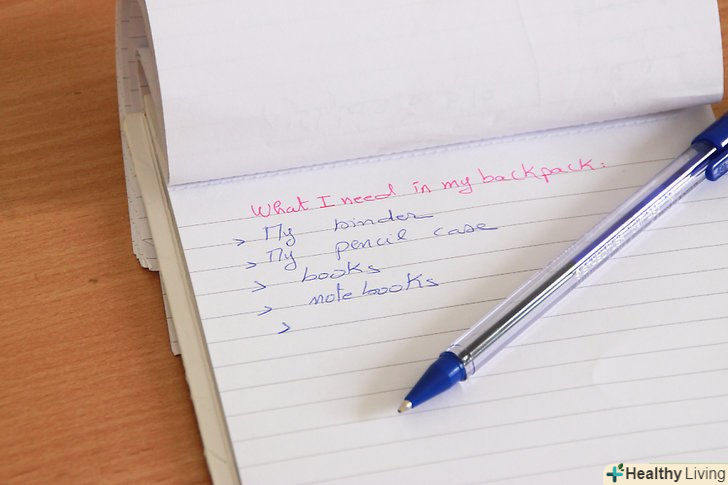 What I need in my backpack:
> My binder
> My pencil case
> books
> notebooks
>
Healthy Living